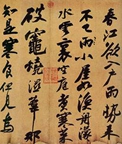 春江欲入戶雨勢來
不已雨小屋如漁舟濛濛
水雲裏空庖煮寒菜
破竈燒濕葦那
知是寒食但見烏